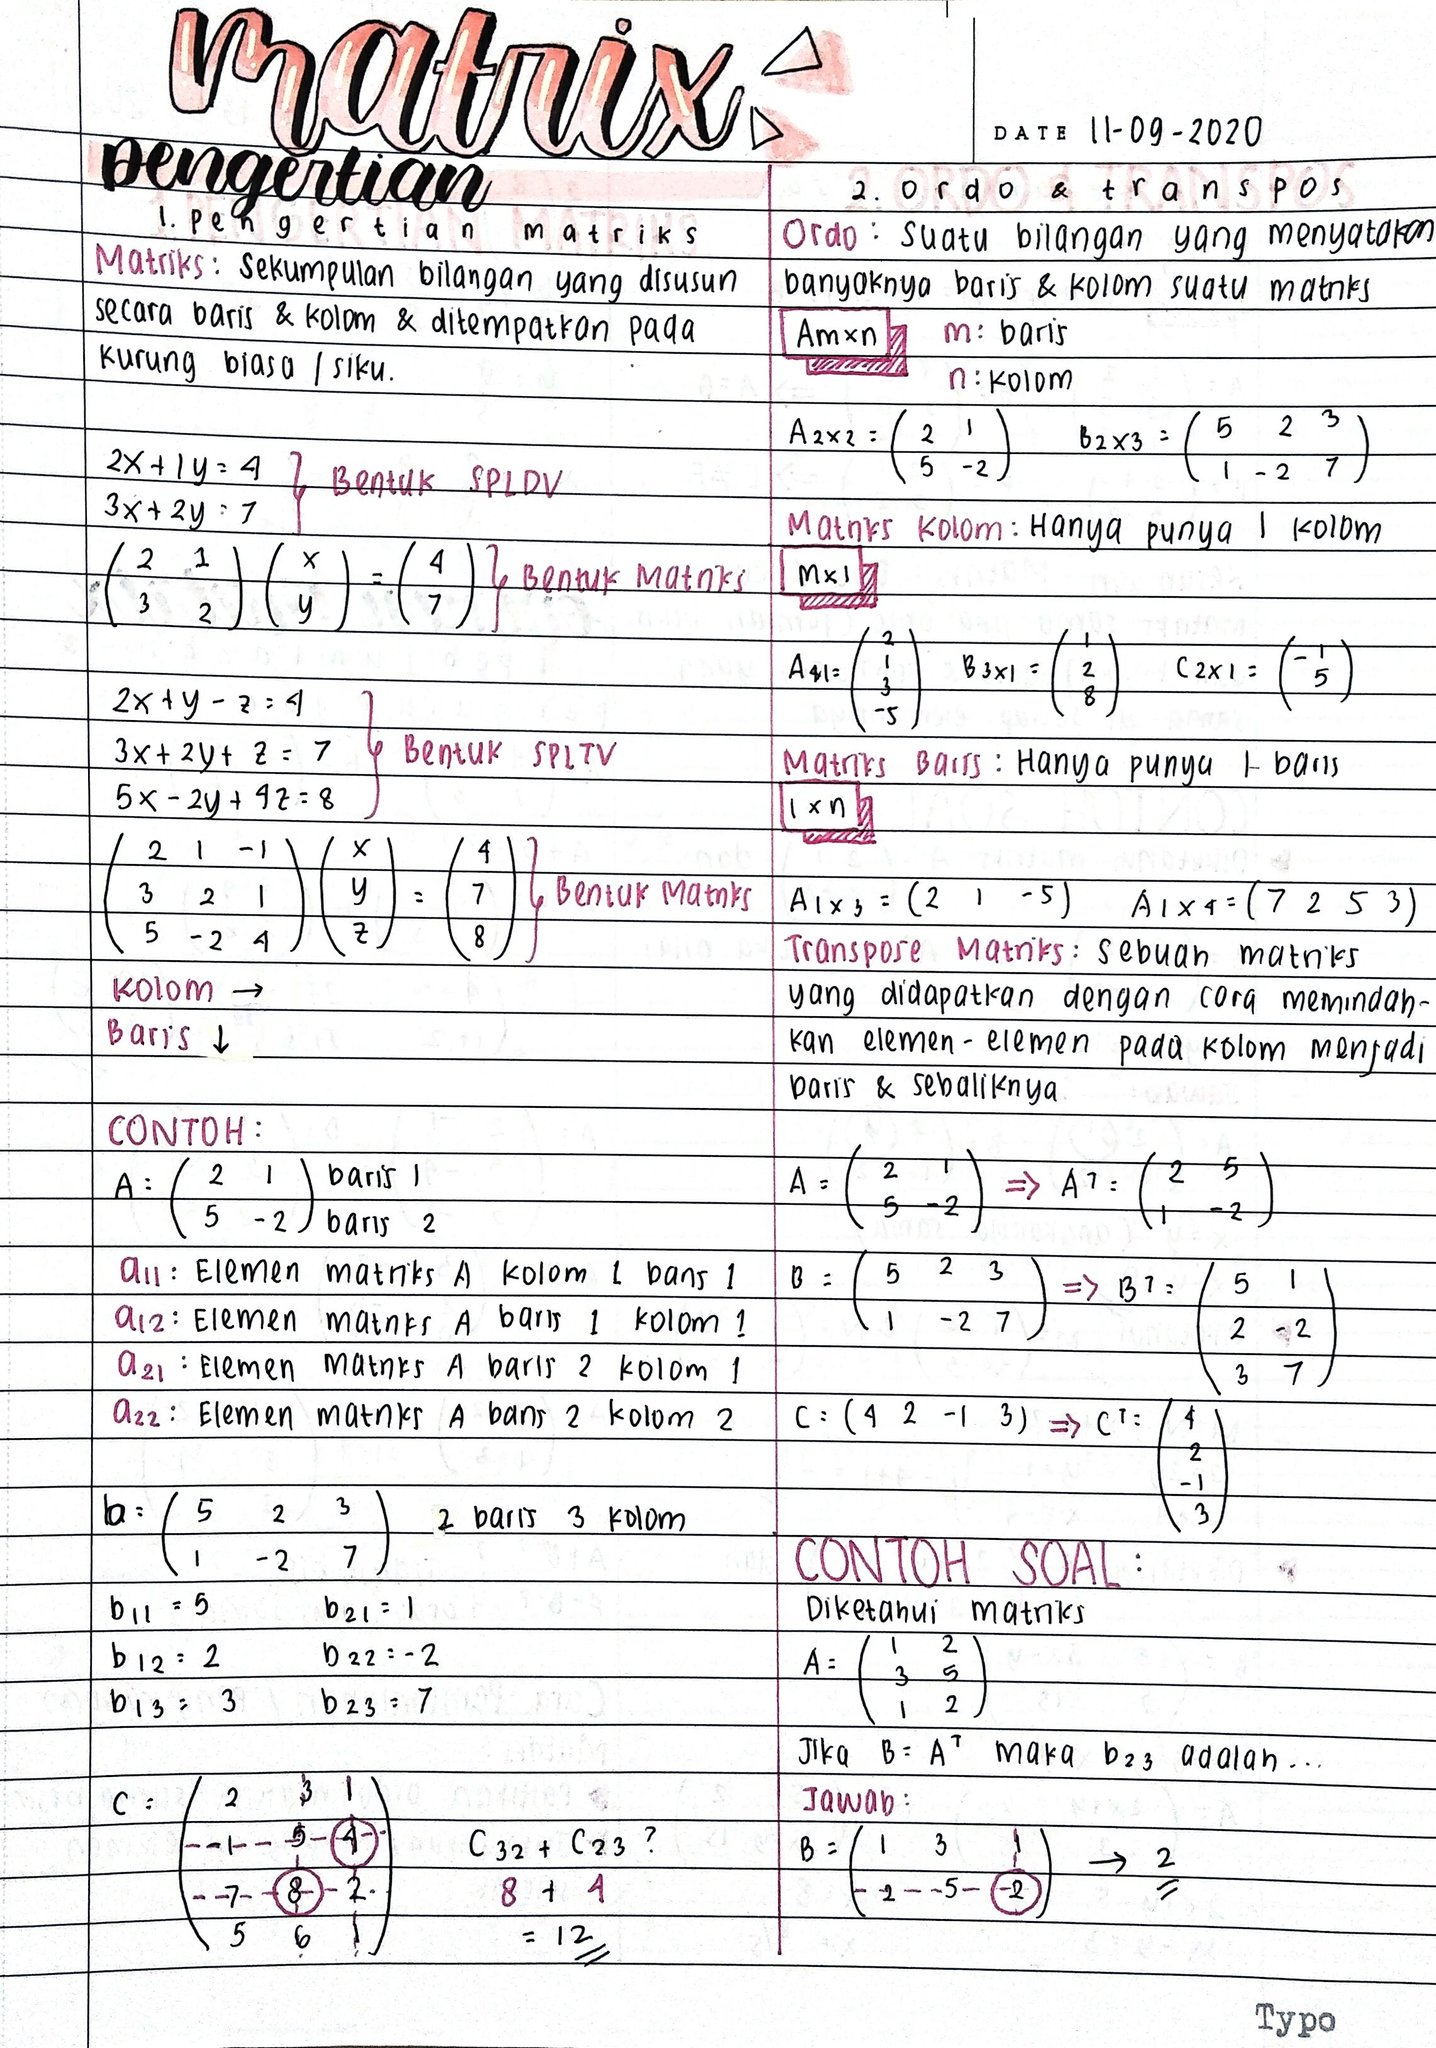 matrix
DATE 11-09-2020
pengertian
1. pengertian matriks
Matriks: Sekumpulan bilangan yang disusun
secara baris & kolom & ditempatkan pada
kurung biasa / siku.
2x+1y=4
3x+2y=7
Bentuk SPLDV
(2 1
3 2) (x
y) = (4
7) Bentuk Matriks
2x+y-z=4
3x+2y+z=7
5x-2y+4z=8
Bentuk SPLTV
(2 1 -1
3 2 1
5 -2 4) (x
y
z) = (4
7
8) Bentuk Matriks
Kolom →
Baris ↓
CONTOH:
A: (2 1) baris 1
(5 -2) baris 2
a11: Elemen matriks A kolom 1 baris 1
a12: Elemen matriks A baris 1 kolom 1
a21: Elemen matriks A baris 2 kolom 1
a22: Elemen matriks A baris 2 kolom 2
b: (5 2 3
1 -2 7) 2 baris 3 kolom
b11 = 5 b21 = 1
b12 = 2 b22 = -2
b13 = 3 b23 = 7
C: (2 3 1
-1 5 4
-7 8 2
5 6 1)
C32 + C23 ?
8 + 4
= 12
2. Ordo & transpos
Ordo: Suatu bilangan yang menyatakan
banyaknya baris & kolom suatu matriks
Am×n m: baris
n: kolom
A2×2 = (2 1
5 -2) B2×3 = (5 2 3
1 -2 7)
Matriks Kolom: Hanya punya 1 kolom
m×1
A41= (2
1
3
-5) B3×1 = (1
2
8) C2×1 = (-1
5)
Matriks Baris: Hanya punya 1 baris
1×n
A1×3 = (2 1 -5) A1×4 = (7 2 5 3)
Transpose Matriks: Sebuah matriks
yang didapatkan dengan cara memindah-
kan elemen-elemen pada kolom menjadi
baris & sebaliknya
A = (2 1
5 -2) ⇒ AT = (2 5
1 -2)
B = (5 2 3
1 -2 7) ⇒ BT = (5 1
2 -2
3 7)
C = (4 2 -1 3) ⇒ CT = (4
2
-1
3)
CONTOH SOAL:
Diketahui matriks
A= (1 2
3 5
1 2)
Jika B = AT maka b23 adalah...
Jawab:
B = (1 3 1
2 5 2) → 2
Typo